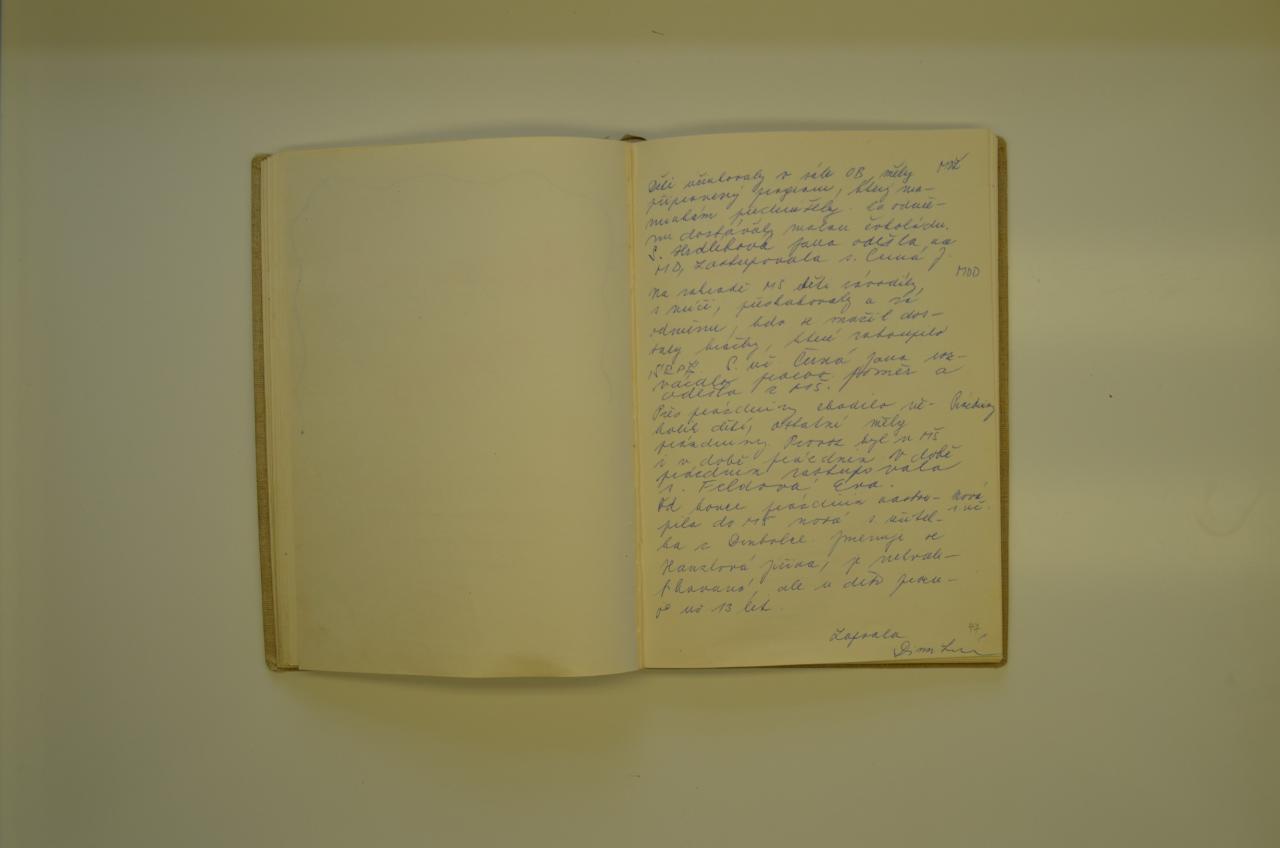 Děti účinkovaly v sále OB, měly MDŽ
připravený program, který ma-
minkám přednášely. Za odmě-
nu dostávaly malou čokoládu.
S. Hrdličková Jana odešla na
MD, zastupovala s. Černá J.
MDD
Na zahradě MŠ děti závodily
s míčí, přeskakovaly a za
odměnu, kdo se snažil dos-
taly hračky, které zakoupilo
SRPŠ. S. uč. Černá Jana roz-
vázala pracov. poměr a
odešla z MŠ.
Přes prázdniny chodilo ně- Prázdniny
kolik dětí, ostatní měly
prázdniny. Provoz byl v MŠ
i v době prázdnin. V době
prázdnin zastupovala
s. Feldová Eva.
Od konce prázdnin nastou- Nová
pila do MŠ nová s. učitel- s. uč.
ka z
Jmenuje se
Hanzlová Jiřina, je nekvali-
fikovaná, ale u dětí pracu-
je už 13 let.
Zapsala
47